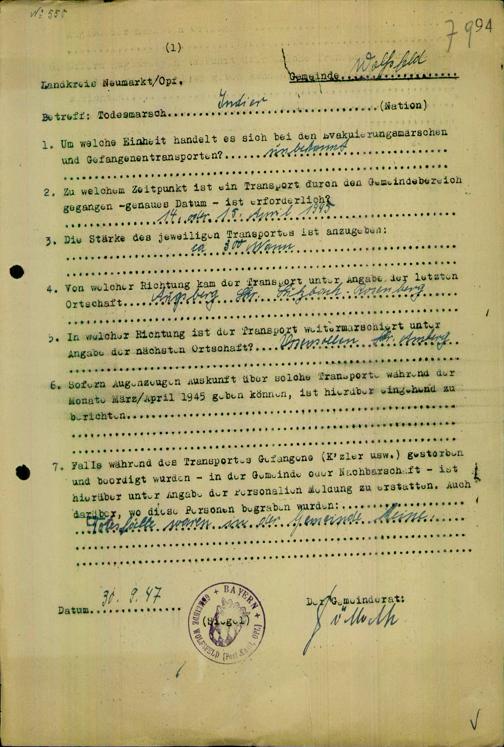 No 555
7994
(1)
Landkreis Neumarkt/Opf. Gemeinde Wolfsfeld
Betreff: Todesmarsch Indier (Nation)
1. Um welche Einheit handelt es sich bei den Evakuierungsmärschen
und Gefangenentransporten? unbekannt
2. Zu welchem Zeitpunkt ist ein Transport durch den Gemeindebereich
gegangen -genaues Datum - ist erforderlich?
14. oder 15. April 1945
3. Die Stärke des jeweiligen Transportes ist anzugeben:
ca 300 Mann
4. Von welcher Richtung kam der Transport unter Angabe der letzten
Ortschaft. Augsberg Sulzbach-Rosenberg
5. In welcher Richtung ist der Transport weitermarschiert unter
Angabe der nächsten Ortschaft? Ursensollen Amberg
6. Sofern Augenzeugen Auskunft über solche Transporte während der
Monate März/April 1945 geben können, ist hierüber eingehend zu
berichten.
7. Falls während des Transportes Gefangene (K'zler usw.) gestorben
und beerdigt wurden - in der Gemeinde oder Nachbarschaft - ist
hierüber unter Angabe der Personalien Meldung zu erstatten. Auch
darüber, wo diese Personen begraben wurden:
Todesfälle waren in der Gemeinde keine.
Datum 30.9.47 (Siegel) Der Gemeinderat:
BAYERN
GEMEINDE WOLFSFELD